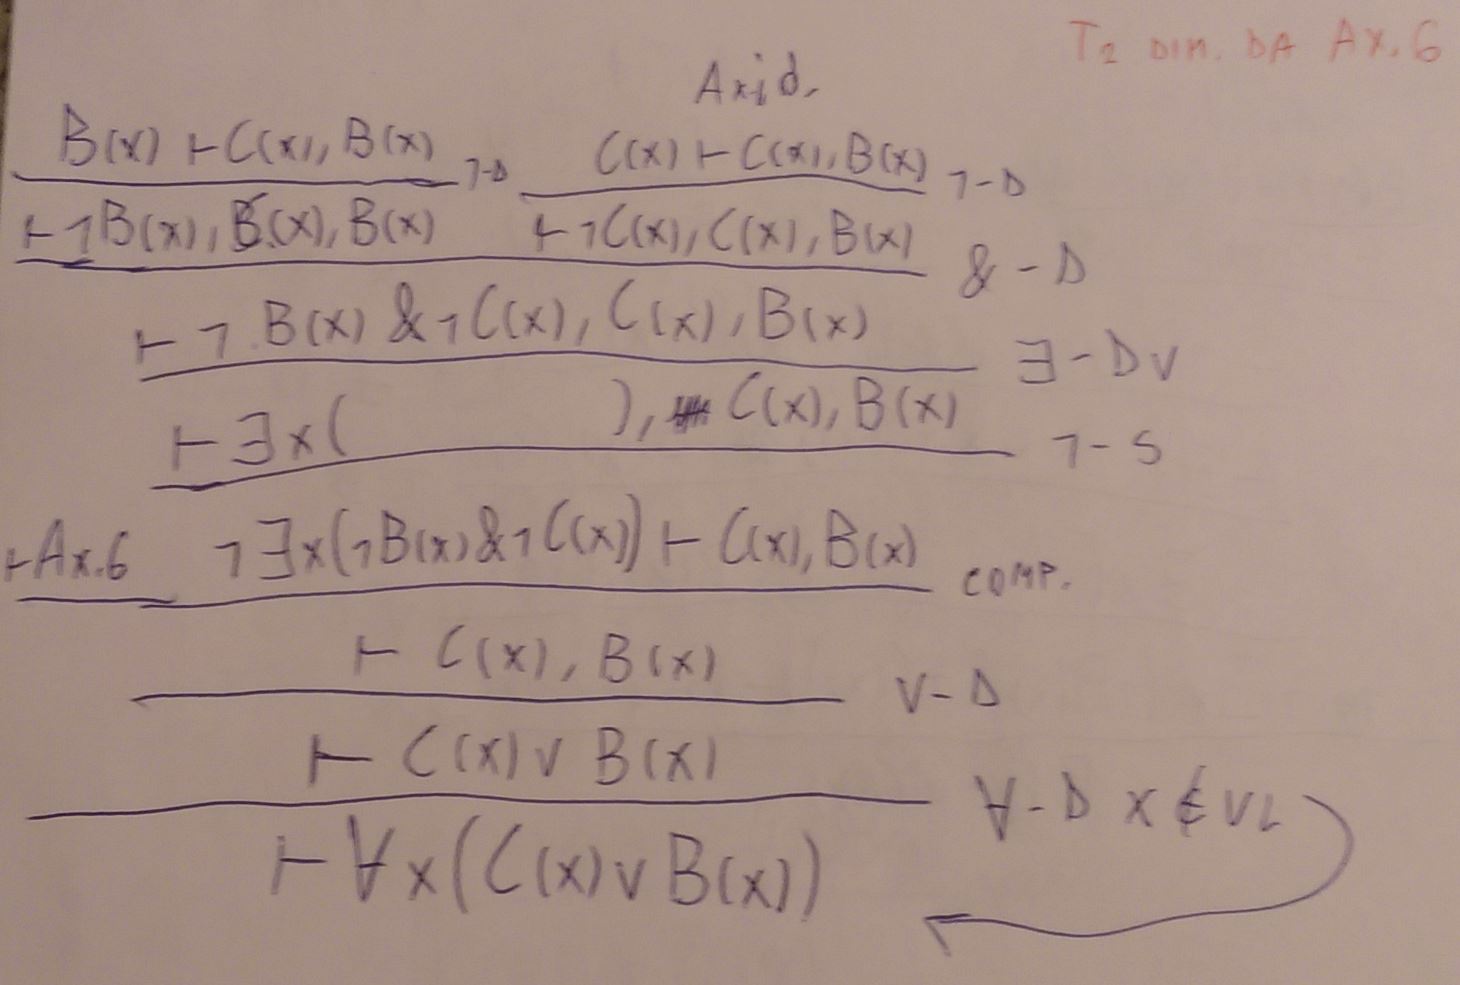 T2 DIM. DA AX.6
Axid.
B(x) ⊢ C(x), B(x) ¬-D C(x) ⊢ C(x), B(x) ¬-D
⊢ ¬B(x), B(x), B(x) ⊢ ¬C(x), C(x), B(x) & -D
⊢ ¬ B(x) & ¬C(x), C(x), B(x) ∃-Dv
⊢ ∃x( ), C(x), B(x) ¬-S
⊢Ax.6 ¬∃x(¬B(x)&¬C(x)) ⊢ C(x), B(x) COMP.
⊢ C(x), B(x) V-D
⊢ C(x) v B(x) ∀-D x∉VL
⊢ ∀x(C(x) v B(x))